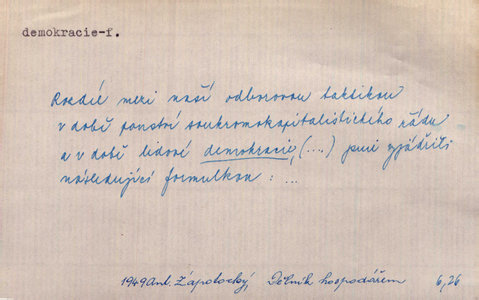 demokracie-f.
Rozdíl mezi naší odborovou taktikou
v době panství soukromokapitalistického řádu
a v době lidové demokracie, (....) jsme vyjádřili
následující formulkou : ...
1949 Ant. Zápotocký, Dělník hospodářem 6,26